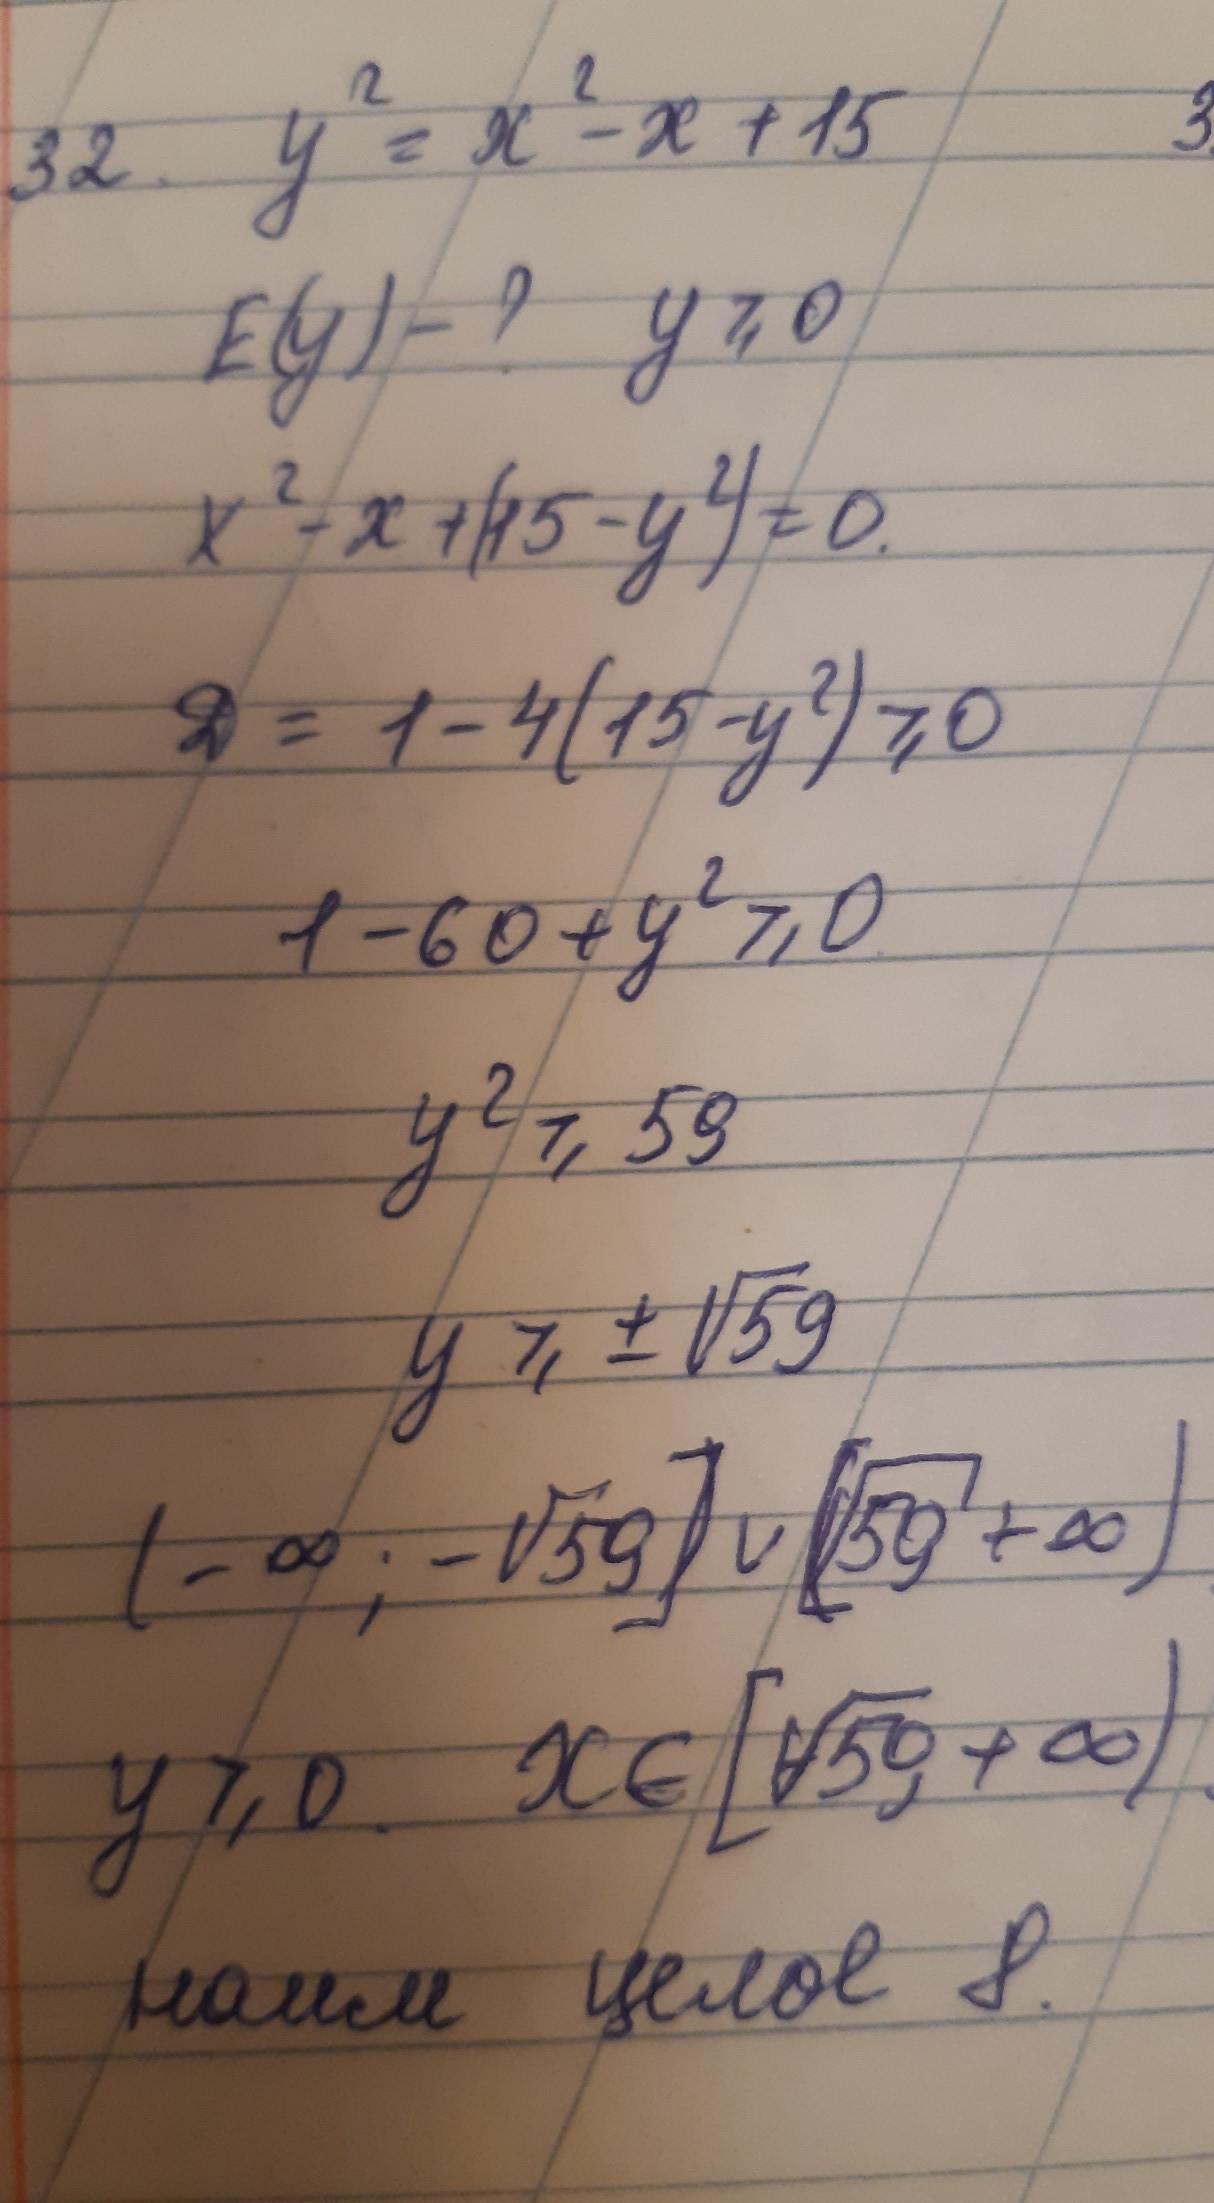 32. y² = x² - x + 15
3
E(y) - ? y ⩾ 0
x² - x + (15 - y²) = 0.
D = 1 - 4(15 - y²) ⩾ 0
1 - 60 + y² ⩾ 0
y² ⩾ 59
y ⩾ ± √59
(-∞; -√59] ∨ [√59 + ∞)
y ⩾ 0. x ∈ [√59, + ∞).
наим целое 8.